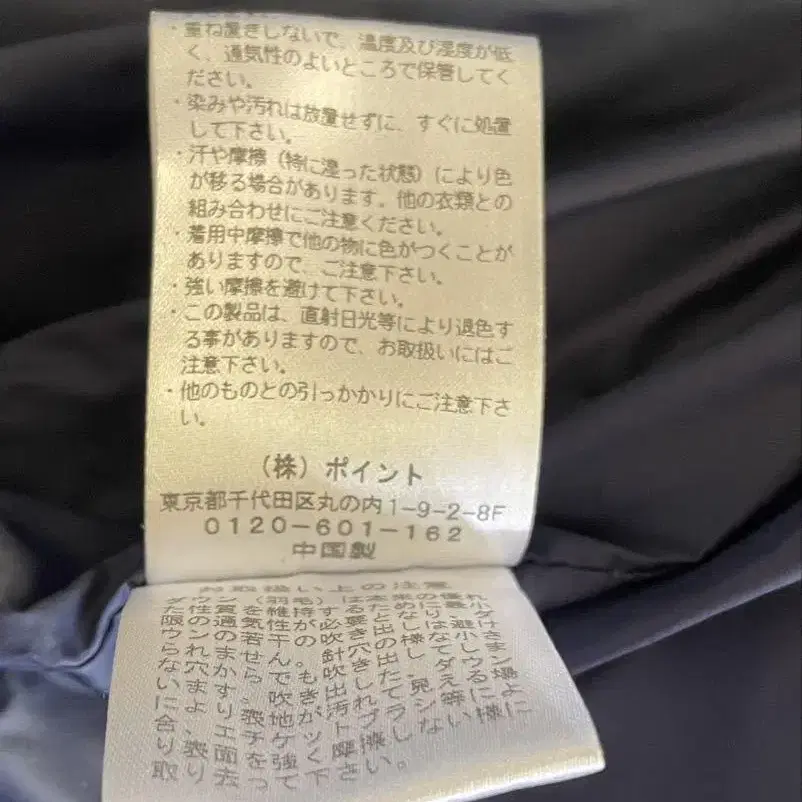 ・重ね置きしないで、温度及び湿度が低
く、通気性のよいところで保管してく
ださい。
・染みや汚れは放置せずに、すぐに処置
して下さい。
・汗や摩擦（特に湿った状態）により色
が移る場合があります。他の衣類との
組み合わせにご注意ください。
・着用中摩擦で他の物に色がつくことが
ありますので、ご注意下さい。
・強い摩擦を避けて下さい。
・この製品は、直射日光等により退色す
る事がありますので、お取扱いにはご
注意下さい。
・他のものとの引っかかりにご注意下さ
い。
（株）ポイント
東京都千代田区丸の内1-9-2-8F
0120-601-162
中国製
お取扱い上の注意
ダウン（羽毛）は本来の優れ
た性質を維持するために最小
限の通気性が必要となり、ダ
ウンの若干の吹き出しは避け
られません。針穴の様な小さ
な穴からでも吹き出してしま
います。吹き出した、ダウン
により表地が汚れて見える場
合、エチケットブラシ等によ
り表面を強く摩擦しない様に
取り去って下さい。